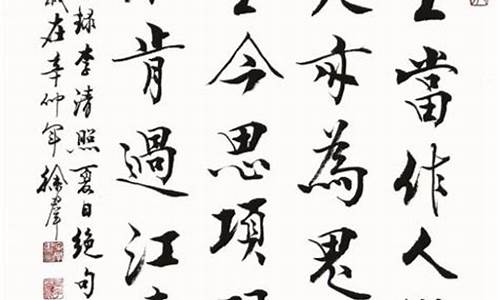 當作人
亦為鬼
今思項
肯過江
錄李清照夏日絕句
歲在辛卯年徐